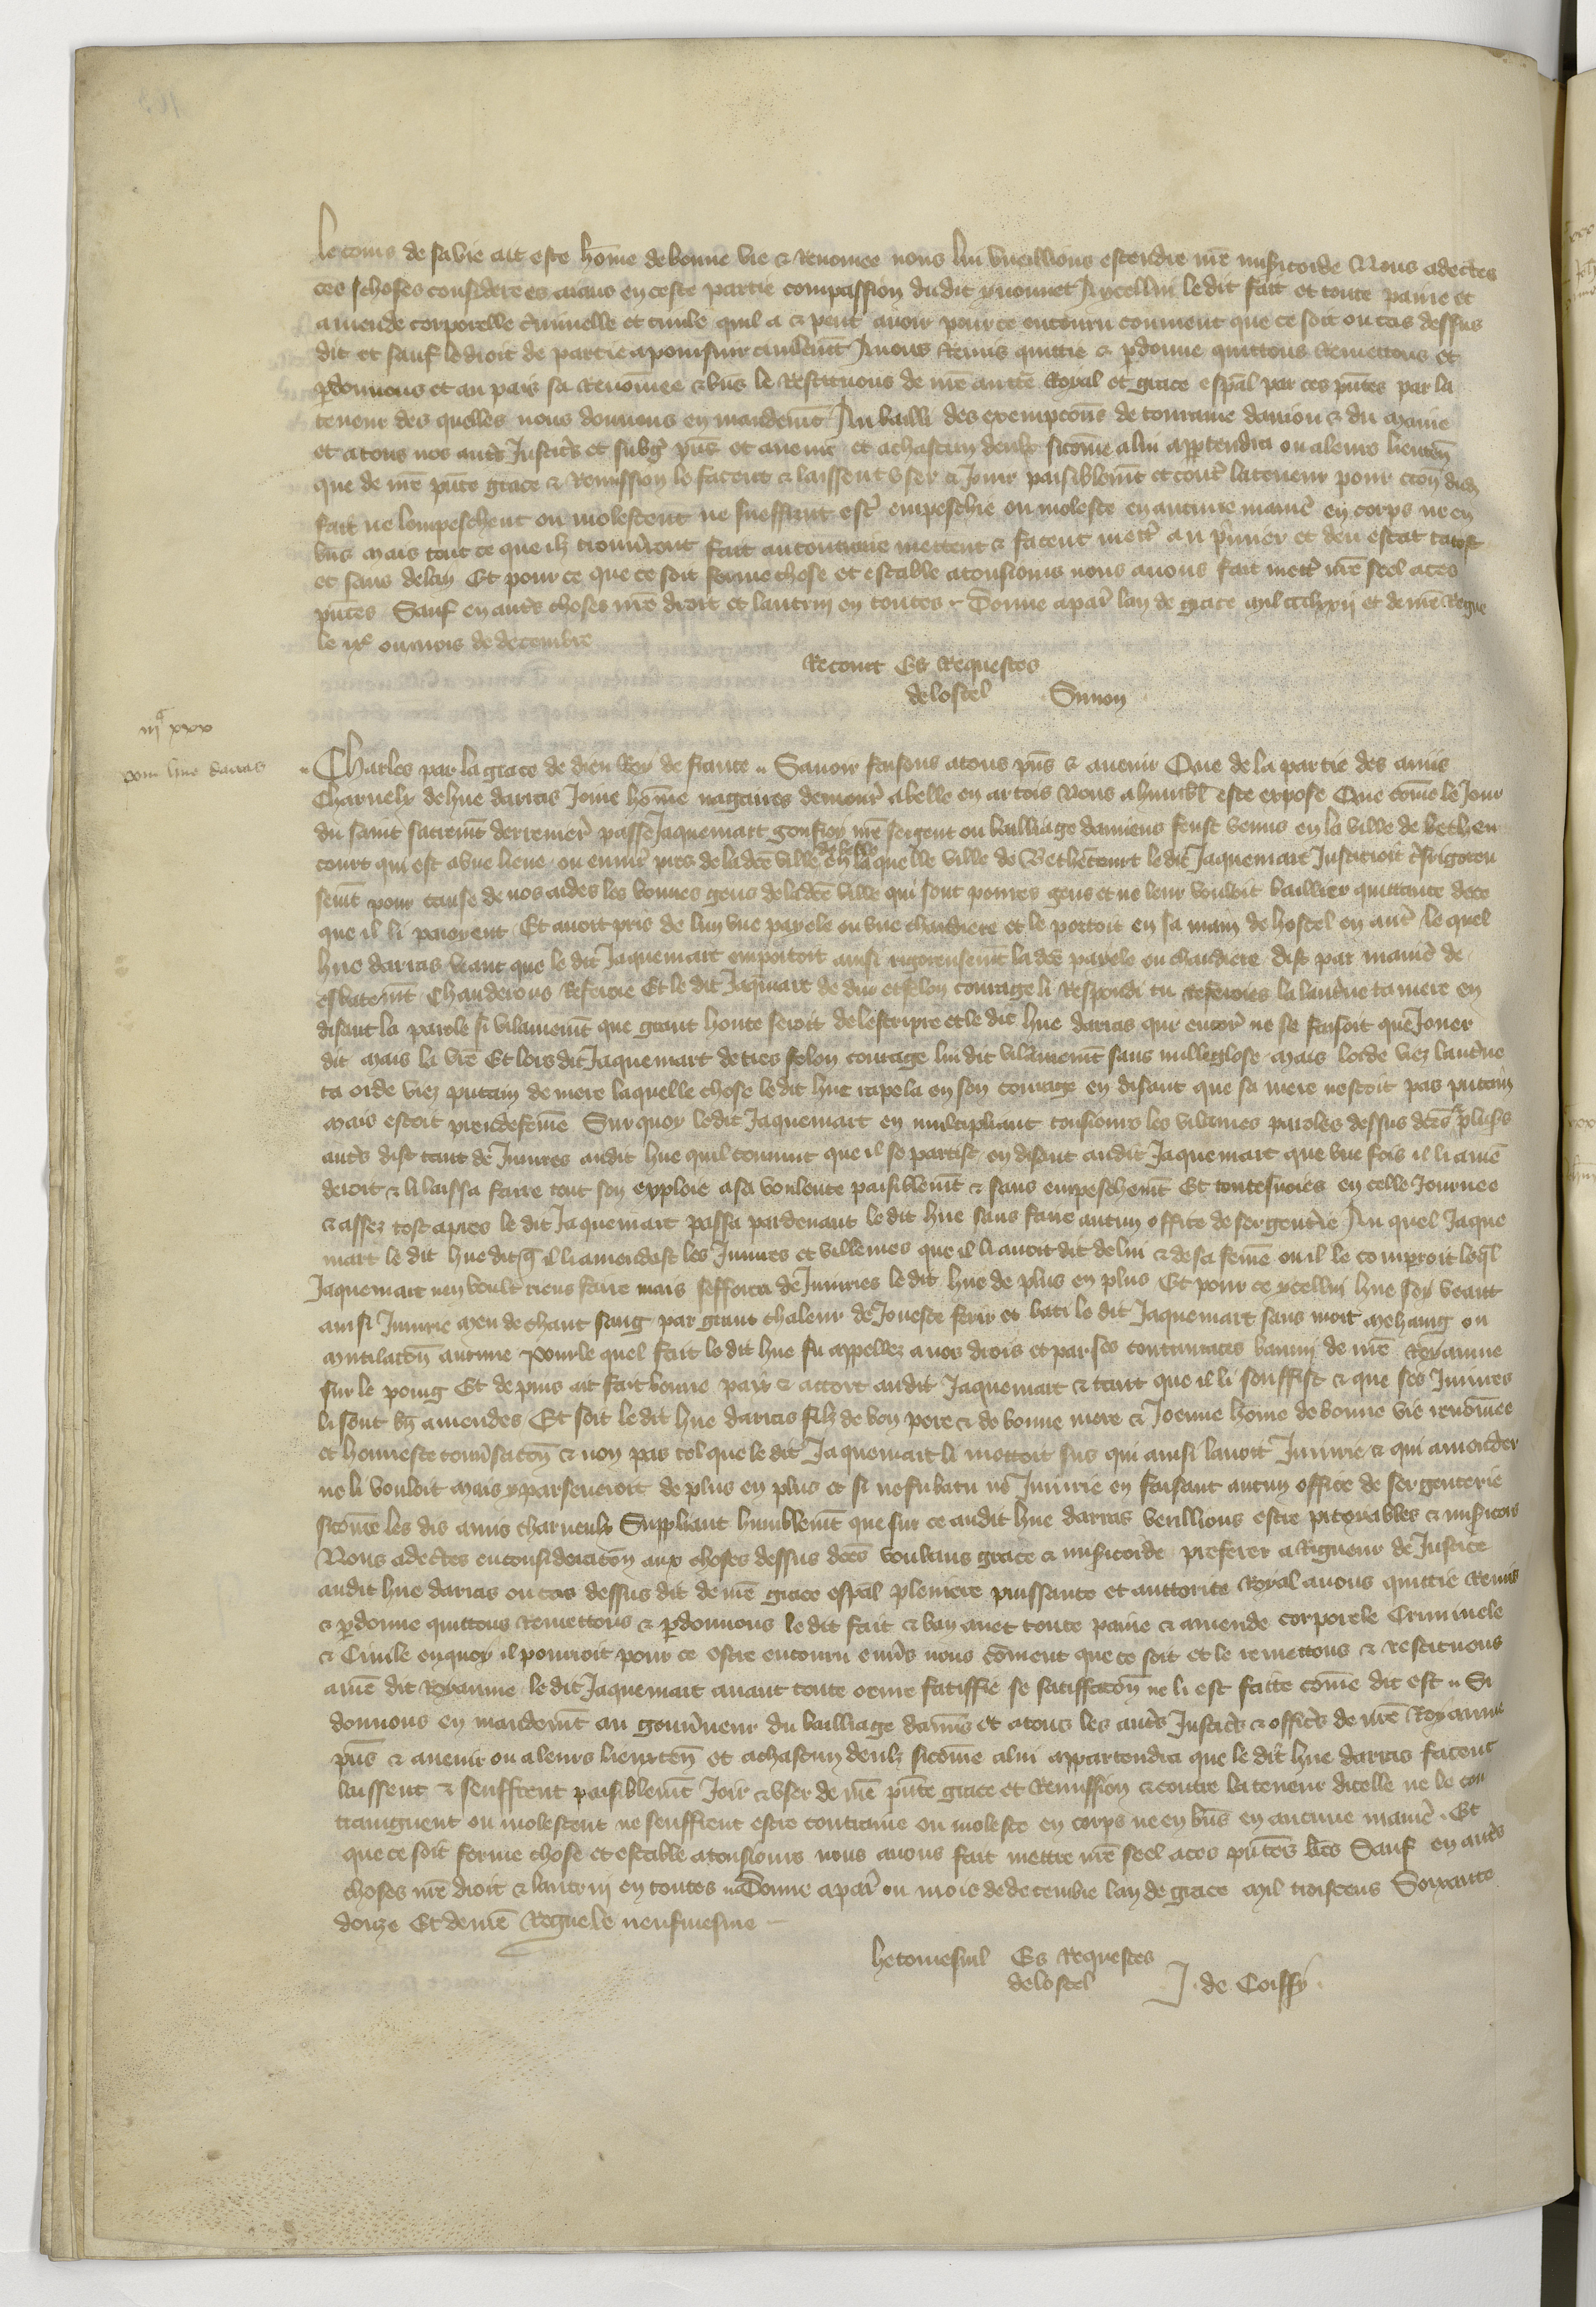 le cours de sa vie ait este hōme de bonne vie & renomee nous lui vueillions estendre nr̄e misicorde Nous adec̄tes
ces choses considerees aians en ceste partie compassion dudit yuonnet A ycellui ledit fait et toute paine et
amende corporelle c̄minelle et ciuile quil a & peut auoir pour ce encouru comment que ce soit ou cas dessus
dit et sauf le droit de partie a poursuir ciuilemt̄ Auons remis quittie & ꝑdonne quittons remettons et
ꝑdonnons et au pais sa renōmee & bn̄s le restituons de nr̄e auctē Royal et grace esp̄al par ces pn̄tes par la
teneur des quelles nous donnons en mandemt̄ Au bailli des exempcōns de touraine daniou & du Maine
et a tous nos autr̄ Justicr̄s et subḡ pn̄s et auenir et a chascun deulx sicōme a lui apꝑtendra ou a leurs lieuten̄
que de nr̄e pn̄te grace & Remission le facent & laissent vser & Jouir paisiblemt̄ et contr̄ la teneur pour ocōn dud̄
fait ne lempeschent ou molestent ne sueffrent estr̄ empeschie ou moleste en aucune manie᷑ en corps ne en
bn̄s Mais tout ce que ilz trouūront fait au contraire mettent & facent mettr̄ au p̄mier et deu estat tātost
et sans delay Et pour ce que ce soit ferme chose et estable a tousiours nous auons fait mettr̄ nr̄e seel a ces
pn̄tes Sauf en autr̄s choses nr̄e droit et lautruy en toutes Donne a par̄ lan de grace mil ccclxxij et de nr̄e Regne
le ixe ou mois de decembre
Es Requestes
de lostel Simon
iijc xxx
pour hue darras
Charles par la grace de dieu Roy de france Sauoir faisons a tous pn̄s & auenir Que de la partie des amis
Charnelx de hue darras Jone hōme nagaires demour̄ a belle en artois Nous a humbl̄ este expose Que cōme le Jour
du saint sacremt̄ derrenier̄ passe Jaquemart gonfroy nr̄e sergent ou bailliage damiens feust venus en la ville de bethen
court qui est a vne lieue ou enuir̄ pres de la dc̄e ville de belle en la quelle ville de Bethēcourt le dit Jaquemart Justicioit tr̄srigoreu
semt̄ pour cause de nos aides les bonnes gens de la dc̄e ville qui sont poures gens et ne leur vouloit baillier quittance de ce
que il li paioyent Et auoit pris de lun vne payele ou vne chaudiere et le portoit en sa main de hostel en autr̄ le quel
hue darras veant que le dit Jaquemart emportoit ainsi rigoreusemt̄ la dc̄e payele ou chaudiere dist par manie᷑ de
esbatemt̄ Chauderons Reffaire Et le dit Jaq̄mart de dur et felon courage li respondi tu refferoies la landre ta mere en
disant la parole si vilainemt̄ que grant honte seroit de lescripre et le dit hue darras qui encor̄ ne se faisoit que Jouer
dit Mais la vr̄e Et lors dit Jaquemart de tres felon courage lui dit vilainemt̄ sans nulle glose Mais lorde viez landr̄e
ta orde viez putain de mere laquelle chose le dit hue rapela en son courage en disant que sa mere nestoit pas putain
Mais estoit preudefēme Surquoy le dit Jaquemart en multipliant tousiours les vilaines paroles dessus dc̄es & plus᷑s
autr̄s dist tant de Jniures audit hue quil conuint que il se partist en disant audit Jaquemart que vne fois il li amē
deroit & li laissa faire tout son exploit a sa voulente paisiblemt̄ & sans empeschemt̄ Et toutesuoies en celle Journee
& assez tost apres le dit Jaquemart passa par deuant le dit hue sans faire aucun office de sergent᷑ie Au quel Jaque
mart le dit hue dit q̄ il li amendast les Jniures et villenies que il li auoit dit de lui & de sa fēme ou il le comperoit leq̄l
Jaquemart nen voult riens faire mais sefforca de Jniurier le dit hue de plus en plus Et pour ce ycellui hue soy veant
ainsi Jniurie Meu de chaut sang par grant chaleur de Jonesce ferir et bati le dit Jaquemart sans mort Mehaing ou
Mutilacōn aucune Pour le quel fait le dit hue fu appellez a nos drois et par ses contumaces banni de nr̄e Royaume
sur le poing Et depuis ait fait bonne paix & accort audit Jaquemart & tant que il li souffist & que ses Jniures
li sont bn̄ amendes Et soit le dit hue darras filz de bon pere & de bonne mere & Joenne home de bonne vie renōmee
et honneste conūsacōn & non pas tel que le dit Jaquemart li mettoit sus qui ainsi lauoit Jniurie & qui amender
ne li vouloit Mais y parseueroit de plus en plus et si ne fu batu ne Jniurie en faisant aucun office de sergenterie
sicōme les dis amis charnelx Suppliant humblemt̄ que sur ce audit hue darras veillions estre piteables & misicors
Nous adec̄tes en consideracōn aux choses dessus dc̄es voulans grace & misicorde preferer a Rigueur de Justice
audit hue darras ou cas dessus dit de nr̄e grace esp̄al pleniere puissance et auctorite Royal auons quittie Remis
& ꝑdonne quittons remettons & ꝑdonnons le dit fait & ban auec toute paine & amende corporele Criminele
& Ciuile en quoy il pourroit pour ce estre encouru enūs nous cōment que ce soit et le remettons & restituons
a nr̄e dit Royaume le dit Jaquemart auant toute oeure satiffie se satiffacōn ne li est faite cōme dit est Si
donnons en mandemt̄ au gouūneur du bailliage damiēs et a tous les autr̄s Justicr̄s & officr̄s de nr̄e Royaume
pn̄s & auenir ou a leurs lieuxten̄ et a chascun deulz sicōme a lui appartendra que le dit hue darras facent
laissent & seuffrent paisiblemt̄ Joir & vser de nr̄e pn̄te grace et Remission & contre la teneur dicelle ne le con
traingnent ou molestent ne seuffrent estre contraint ou moleste en corps ne en bn̄s en aucune manie᷑ Et
que ce soit ferme chose et estable a tousiours nous auons fait mettre nr̄e seel a ces pn̄tes lr̄es Sauf en autr̄s
choses nr̄e droit & lautruy en toutes Donne a par̄ ou mois de decembre lan de grace Mil troiscens Soixante
douze Et de nr̄e Regne le neufuiesme
hetomesnil Es Requestes
de lostel J. de Coiffy